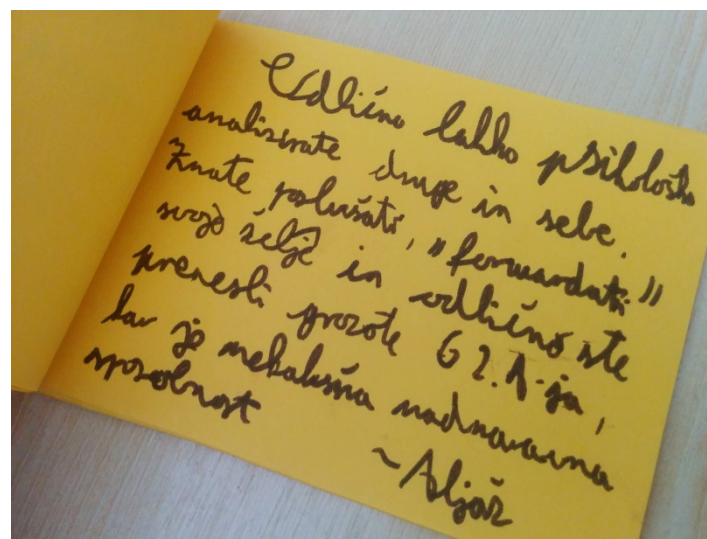 Odlično lahko psihološko
analizirate druge in sebe.
Znate poslušati, "forwardati"
svoje želje in odlično ste
prenesli grozote G 2.A-ja,
kar je nekakšna nadnaravna
sposobnost
~Aljaž